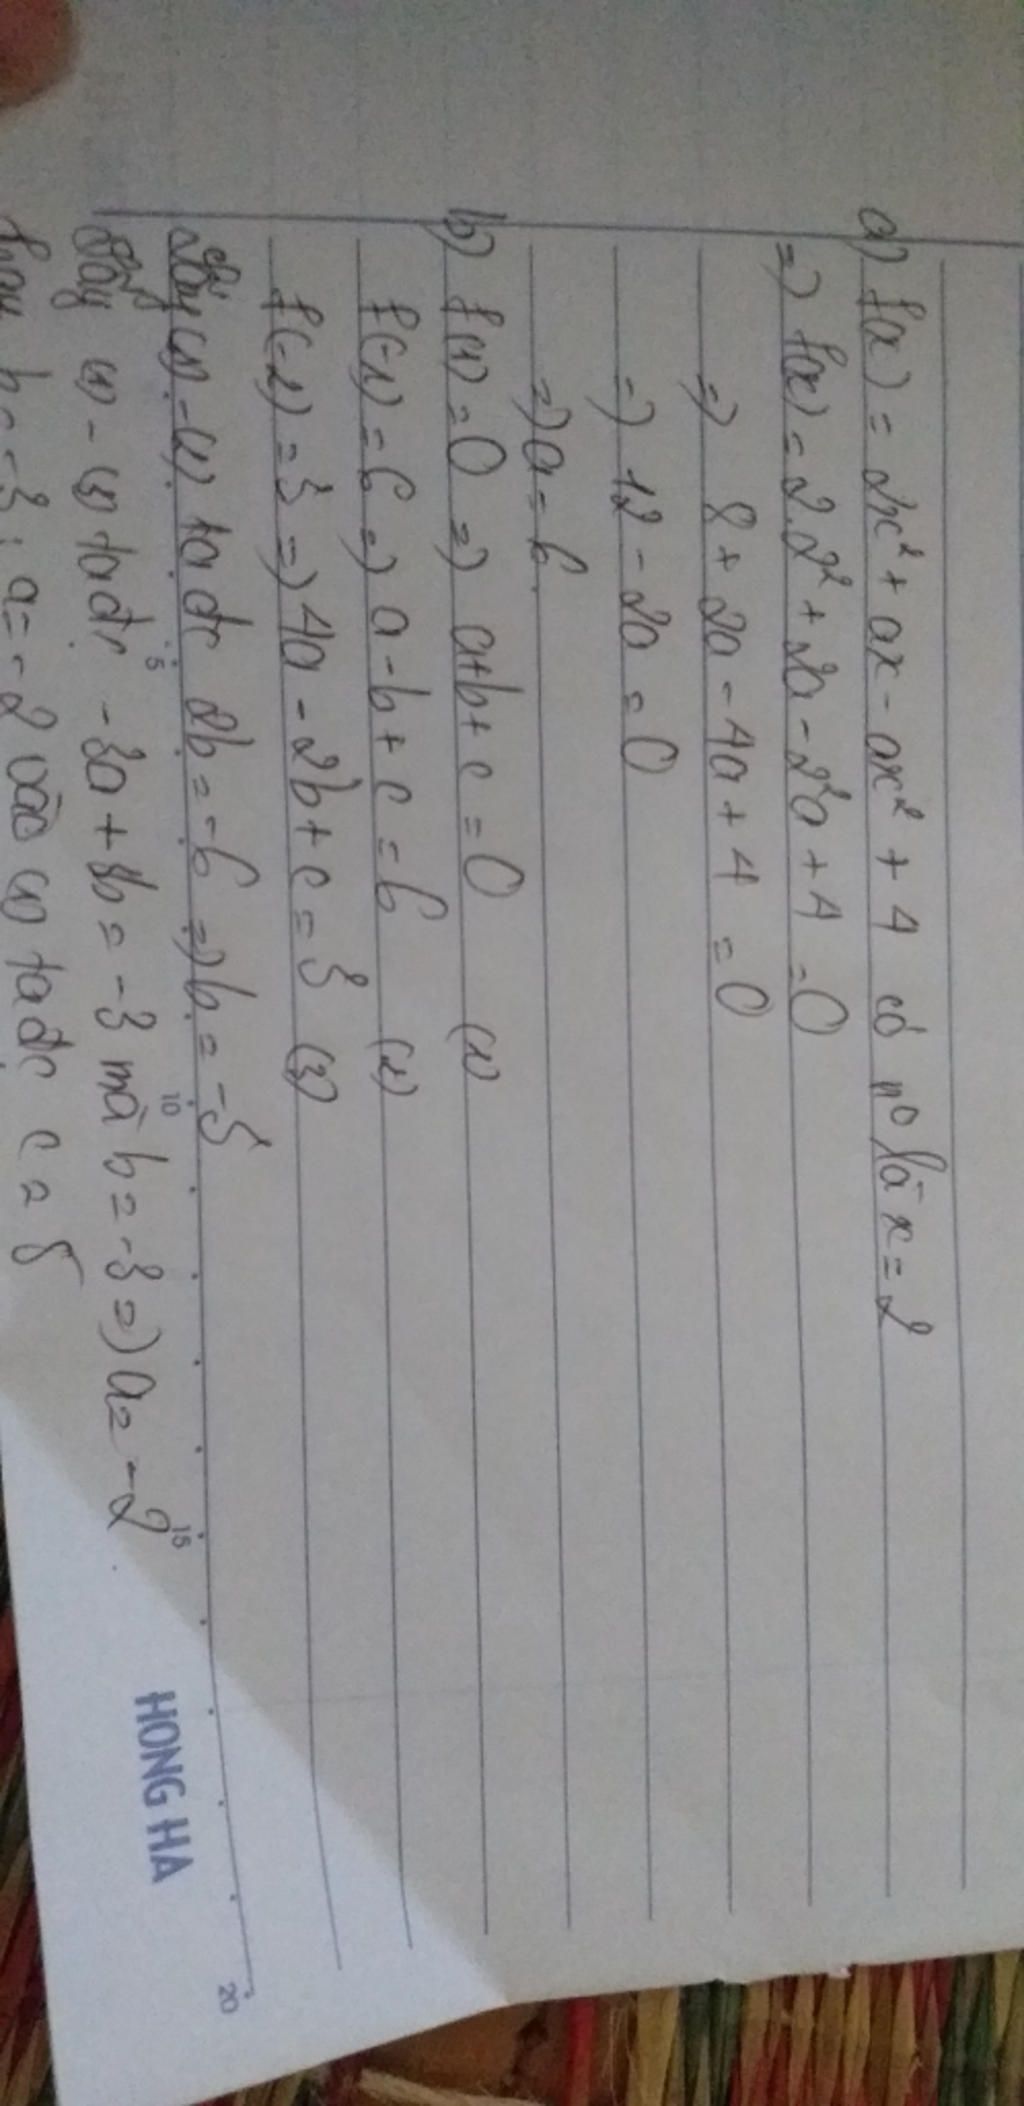 a) f(x) = 2x² + ax - ax² + 4 có n⁰ là x = 2
=) f(x) = 2.2² + 2a - 2²a + 4 = 0
=) 8 + 2a - 4a + 4 = 0
=) 12 - 2a = 0
=) a = 6
b) f(1) = 0 =) a+b+c = 0 (1)
f(-1) = 6 =) a - b + c = 6 (2)
f(-2) = 3 =) 4a - 2b + c = 3 (3)
Lấy (1) - (2) ta đc 2b = -6 =) b = -3
Lấy (1) - (3) ta đc -3a + 3b = -3 mà b = -3 =) a = -2
b = -3 ; a = -2 vào (1) ta đc c = 5
5
10
15
20
HONG HA